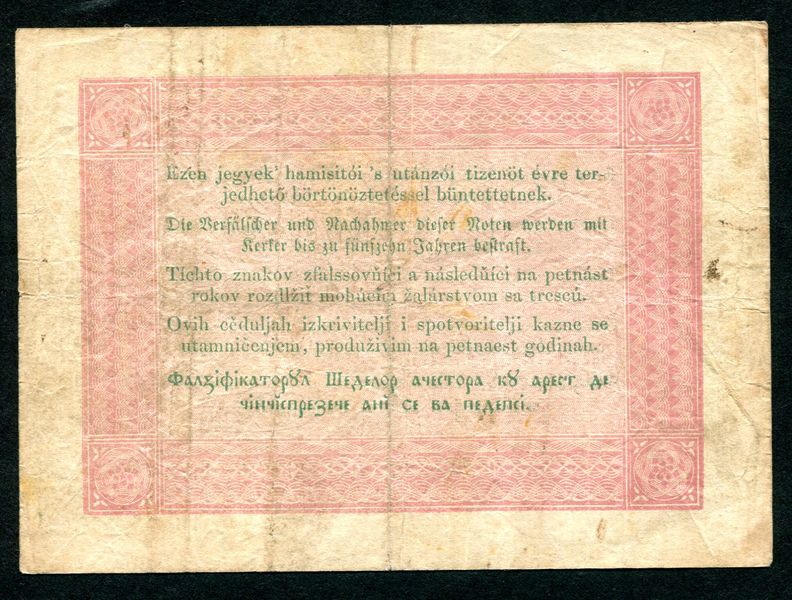 Ezen jegyek' hamisitói 's utánzói tizenöt évre ter-
jedhető börtönöztetéssel büntettetnek.
Die Verfälscher und Nachahmer dieser Noten werden mit
Kerker bis zu fünfzehn Jahren bestraft.
Tíchto znakov zfalssovňíci a následňíci na petnást
rokov rozdlžit mohúcím žalárstvom sa trescú.
Ovih cěduljah izkrivitelji i spotvoritelji kazne se
utamničenjem, produživim na petnaest godinah.
Фалзіфікаторꙋл Шеделор ачестора кꙋ арест де
чінчіспрезече ані се ва педепсі.